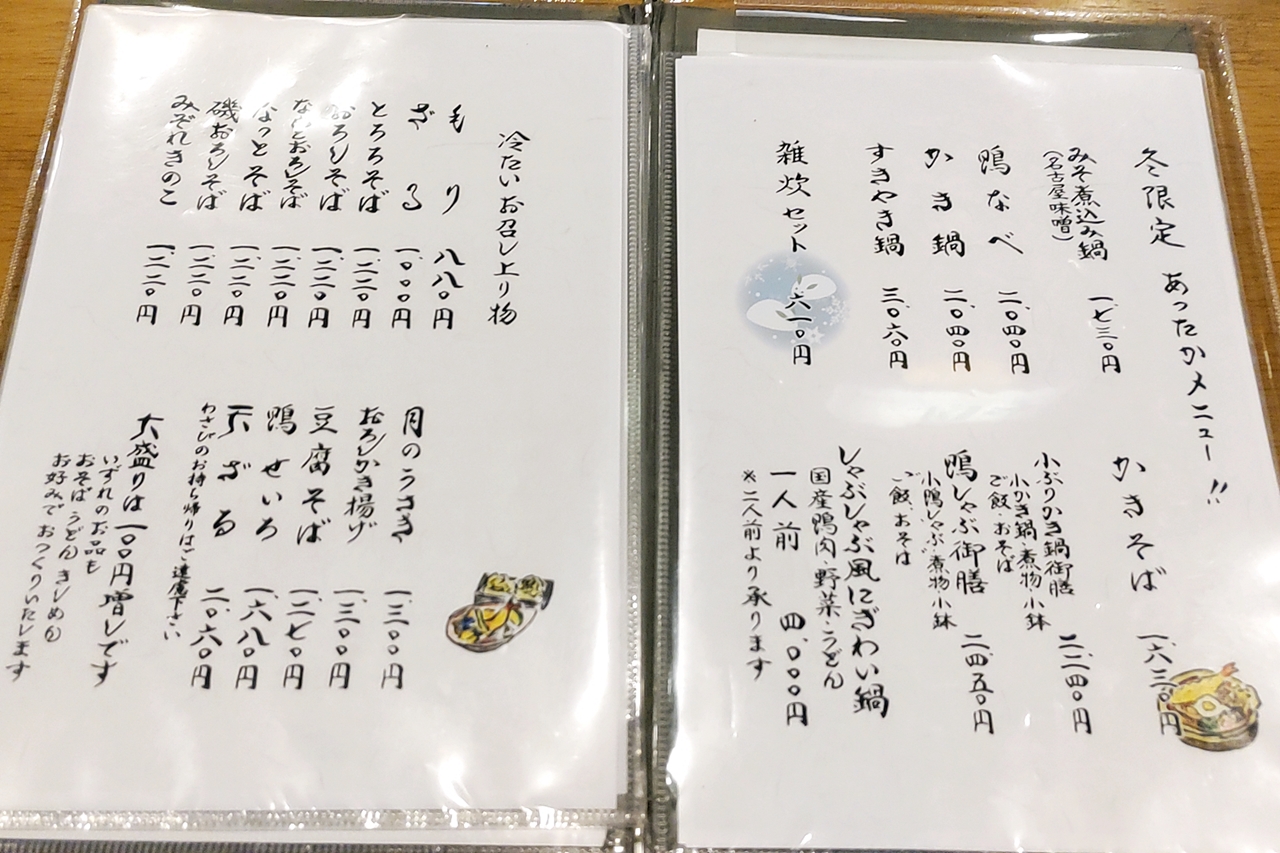 冬限定 あったかメニュー!!
みそ煮込み鍋
(名古屋味噌)
一、七三〇円
鴨なべ 二、〇四〇円
かき鍋 二、〇四〇円
すきやき鍋 三、〇六〇円
雑炊セット 六一〇円
かきそば 一、六三〇円
小ぶりかき鍋御膳
小かき鍋・煮物・小鉢
ご飯、おそば
二、二四〇円
鴨しゃぶ御膳 二、四五〇円
小鴨しゃぶ・煮物・小鉢
ご飯、おそば
しゃぶしゃぶ風にぎわい鍋
国産鴨肉・野菜・うどん
一人前 四、〇〇〇円
※二人前より承ります
冷たいお召し上り物
もり 八八〇円
ざる 一、〇〇〇円
とろろそば 一、二二〇円
おろしそば 一、二二〇円
なっとおろしそば 一、二二〇円
なっとそば 一、二二〇円
磯おろしそば 一、二二〇円
みぞれきのこ 一、二二〇円
月のうさぎ 一、三〇〇円
おろしかき揚げ 一、三〇〇円
豆腐そば 一、二七〇円
鴨せいろ 一、六八〇円
天ざる 二、〇六〇円
わさびのお持ち帰りはご遠慮下さい
大盛りは一〇〇円増しです
いずれのお品も
おそば うどん きしめん
お好みで おつくりいたします